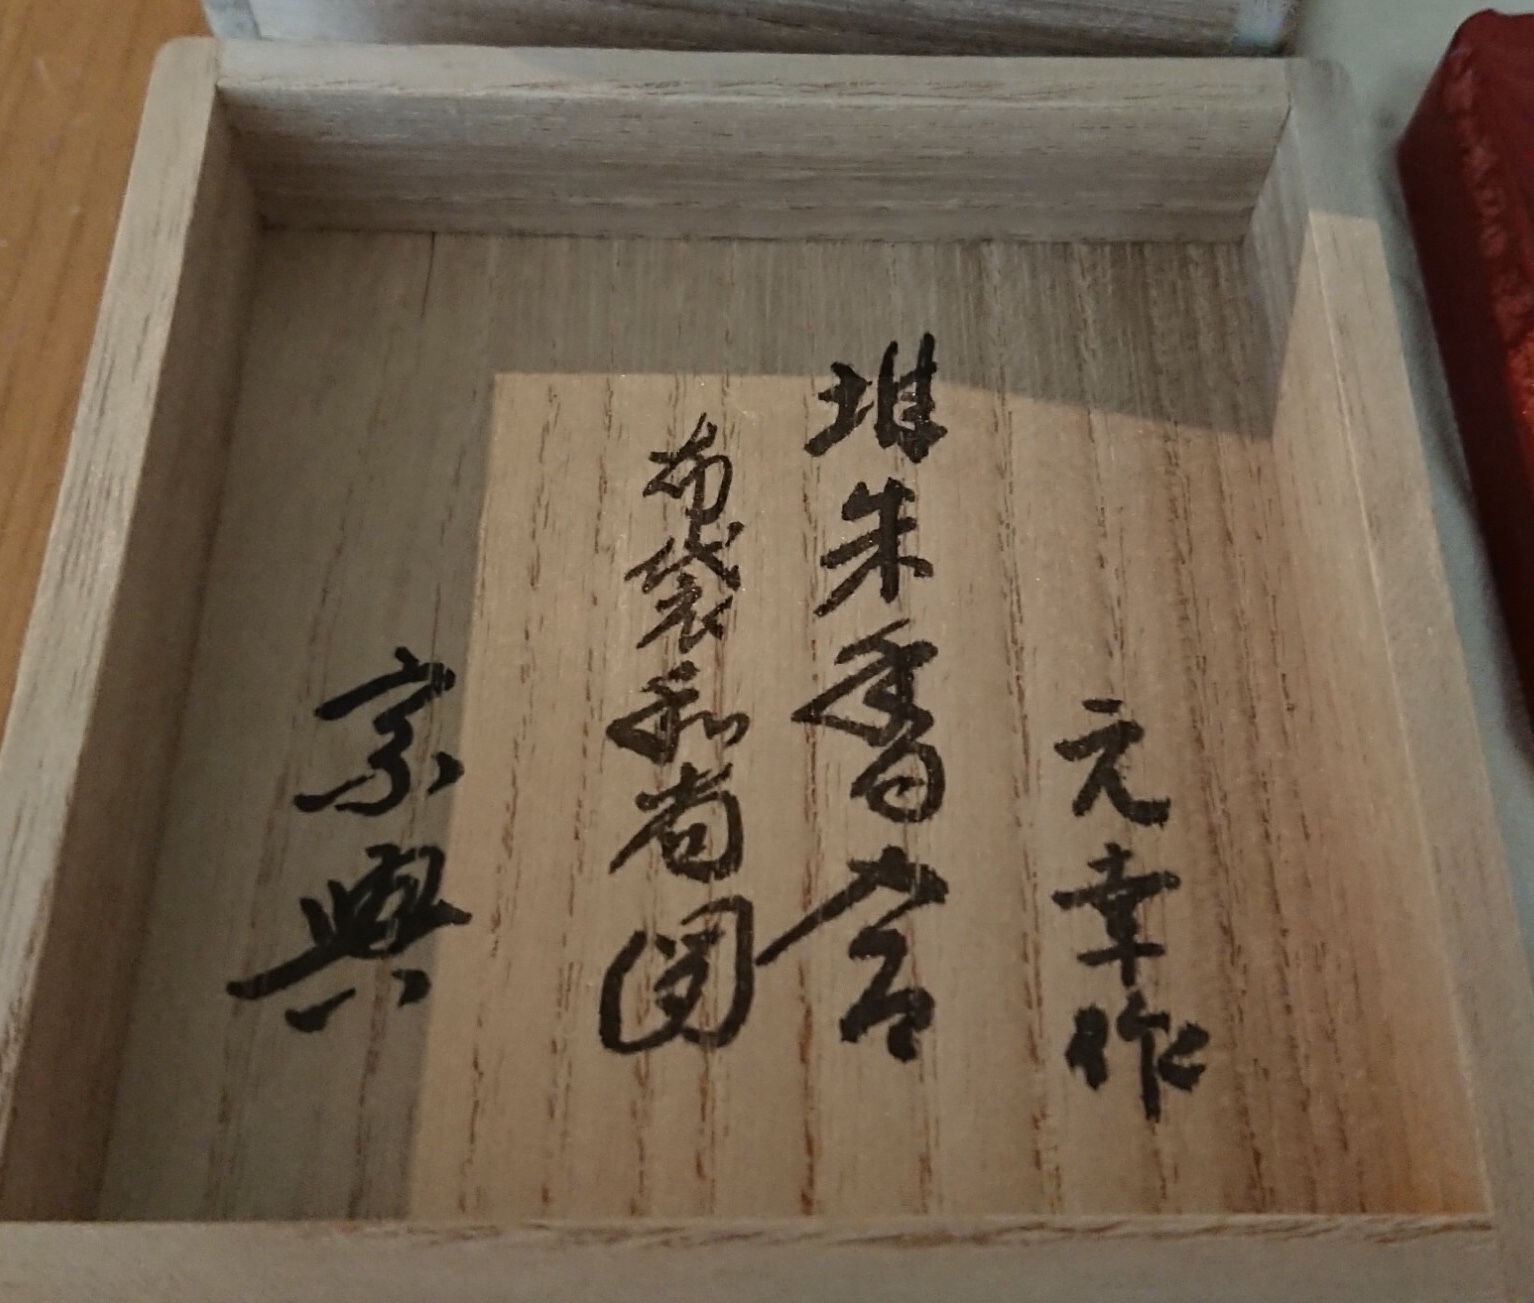 元幸作
堆朱香合
布袋和尚図
宗興